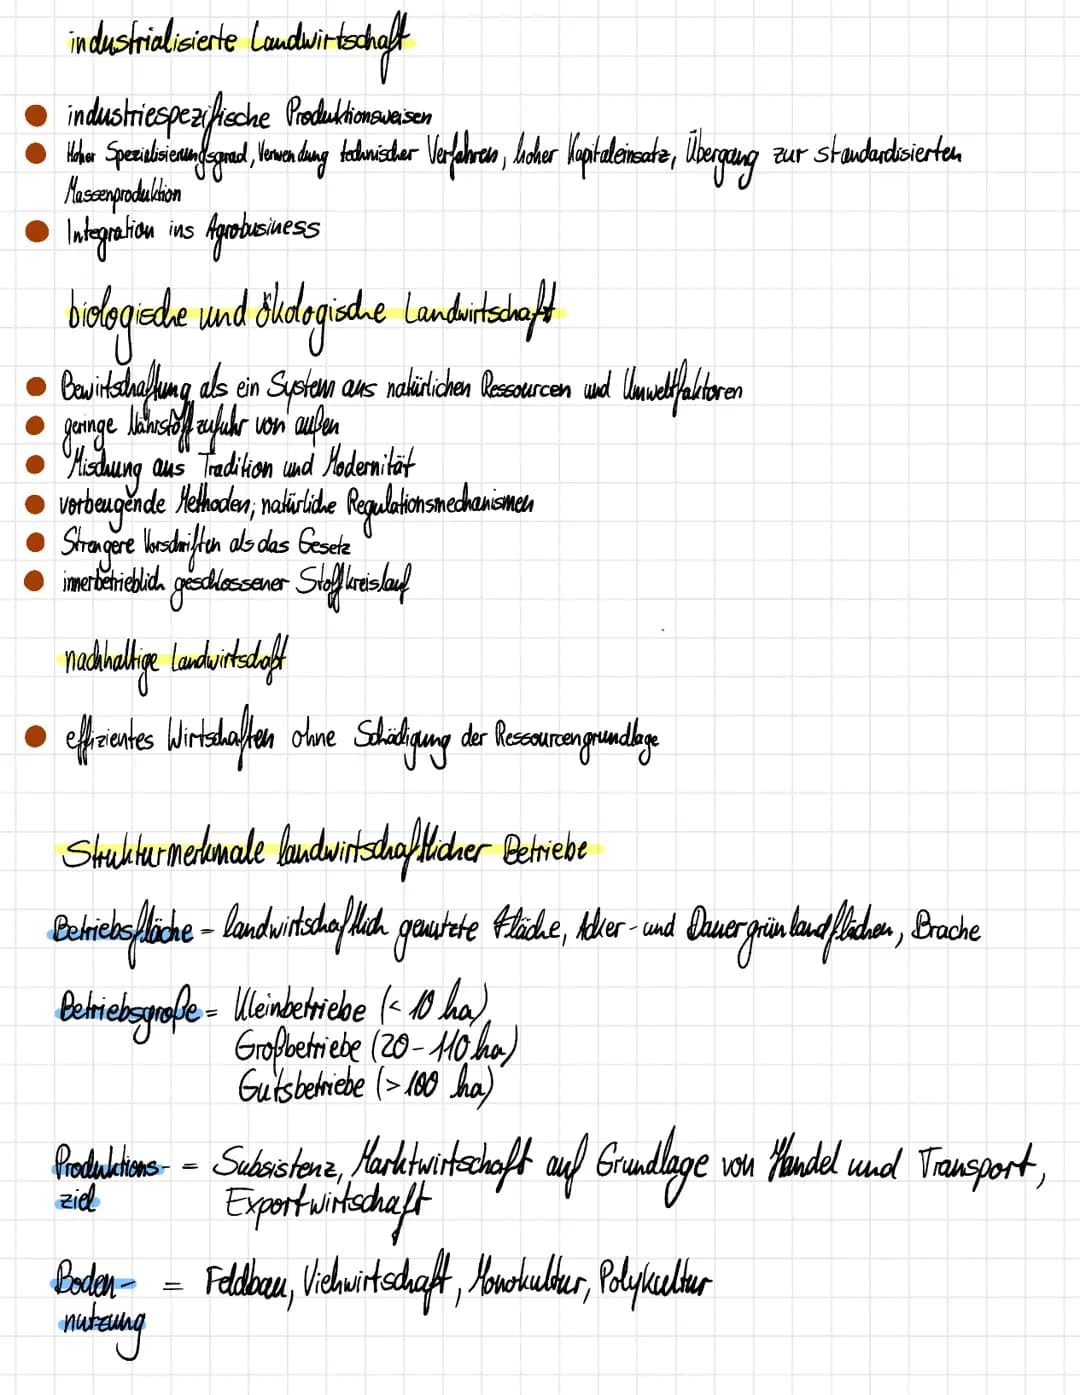 industrialisierte Landwirtschaft
industriespezifische Produktionsweisen
Hoher Spezialisierungsgrad, Verwendung technischer Verfahren, hoher Kapitaleinsatz, Übergang zur standardisierten
Massenproduktion
Integration ins Agrobusiness
biologische und ökologische Landwirtschaft
Bewirtschaftung als ein System aus natürlichen Ressourcen und Umweltfaktoren
geringe Nährstoffzufuhr von außen
Mischung aus Tradition und Modernität
vorbeugende Methoden; natürliche Regulationsmechanismen
Strengere Vorschriften als das Gesetz
innerbetrieblich geschlossener Stoffkreislauf
nachhaltige Landwirtschaft
effizientes Wirtschaften ohne Schädigung der Ressourcengrundlage
Strukturmerkmale landwirtschaftlicher Betriebe
Betriebsfläche - landwirtschaftlich genutzte Fläche, Acker- und Dauergrünlandflächen, Brache
Betriebsgroße = Kleinbetriebe (< 10 ha)
Großbetriebe (20-110 ha)
Gutsbetriebe (> 100 ha)
Produktions- = Subsistenz, Marktwirtschaft auf Grundlage von Handel und Transport,
ziel Exportwirtschaft
Boden- = Feldbau, Viehwirtschaft, Monokultur, Polykultur
nutzung